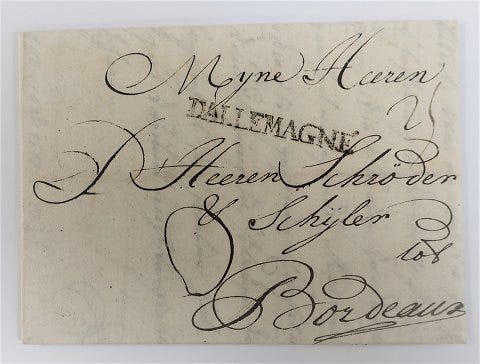 Myne Heeren
DALLEMAGNE
D' Heeren Schröder
& Schÿler
tot
Bordeaux